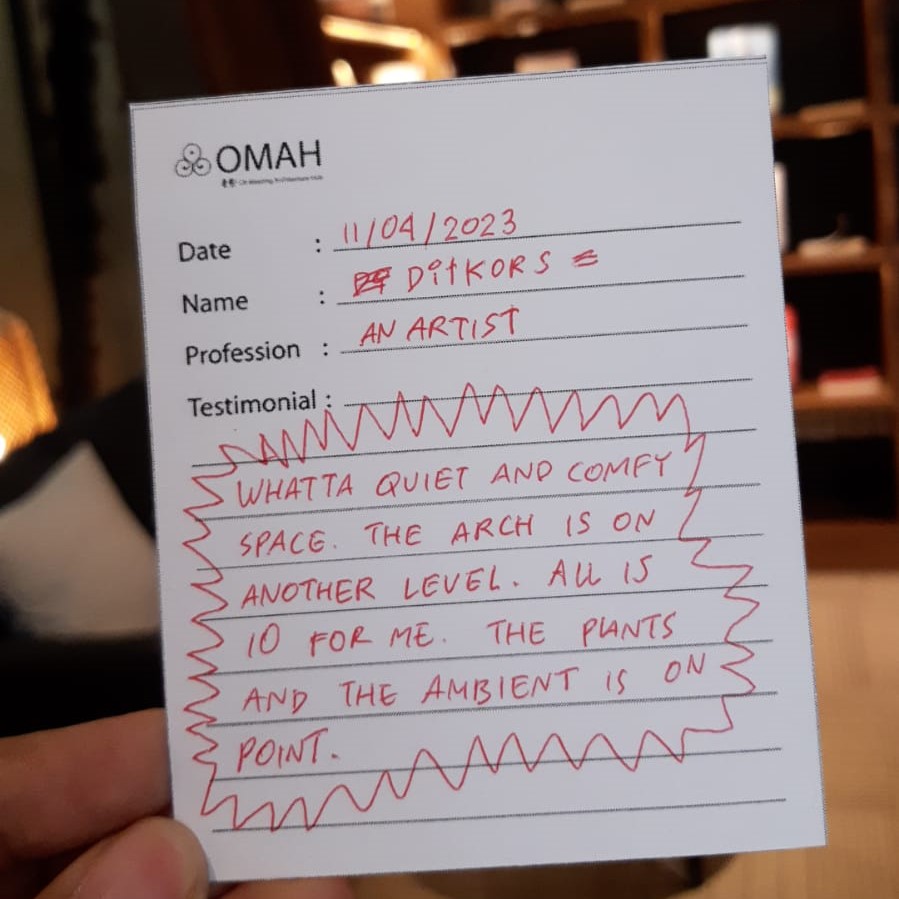 OMAH
Date : 11/04/2023
Name : DitKORS
Profession : AN ARTIST
Testimonial :
WHATTA QUIET AND COMFY
SPACE. THE ARCH IS ON
ANOTHER LEVEL. ALL IS
10 FOR ME. THE PLANTS
AND THE AMBIENT IS ON
POINT.